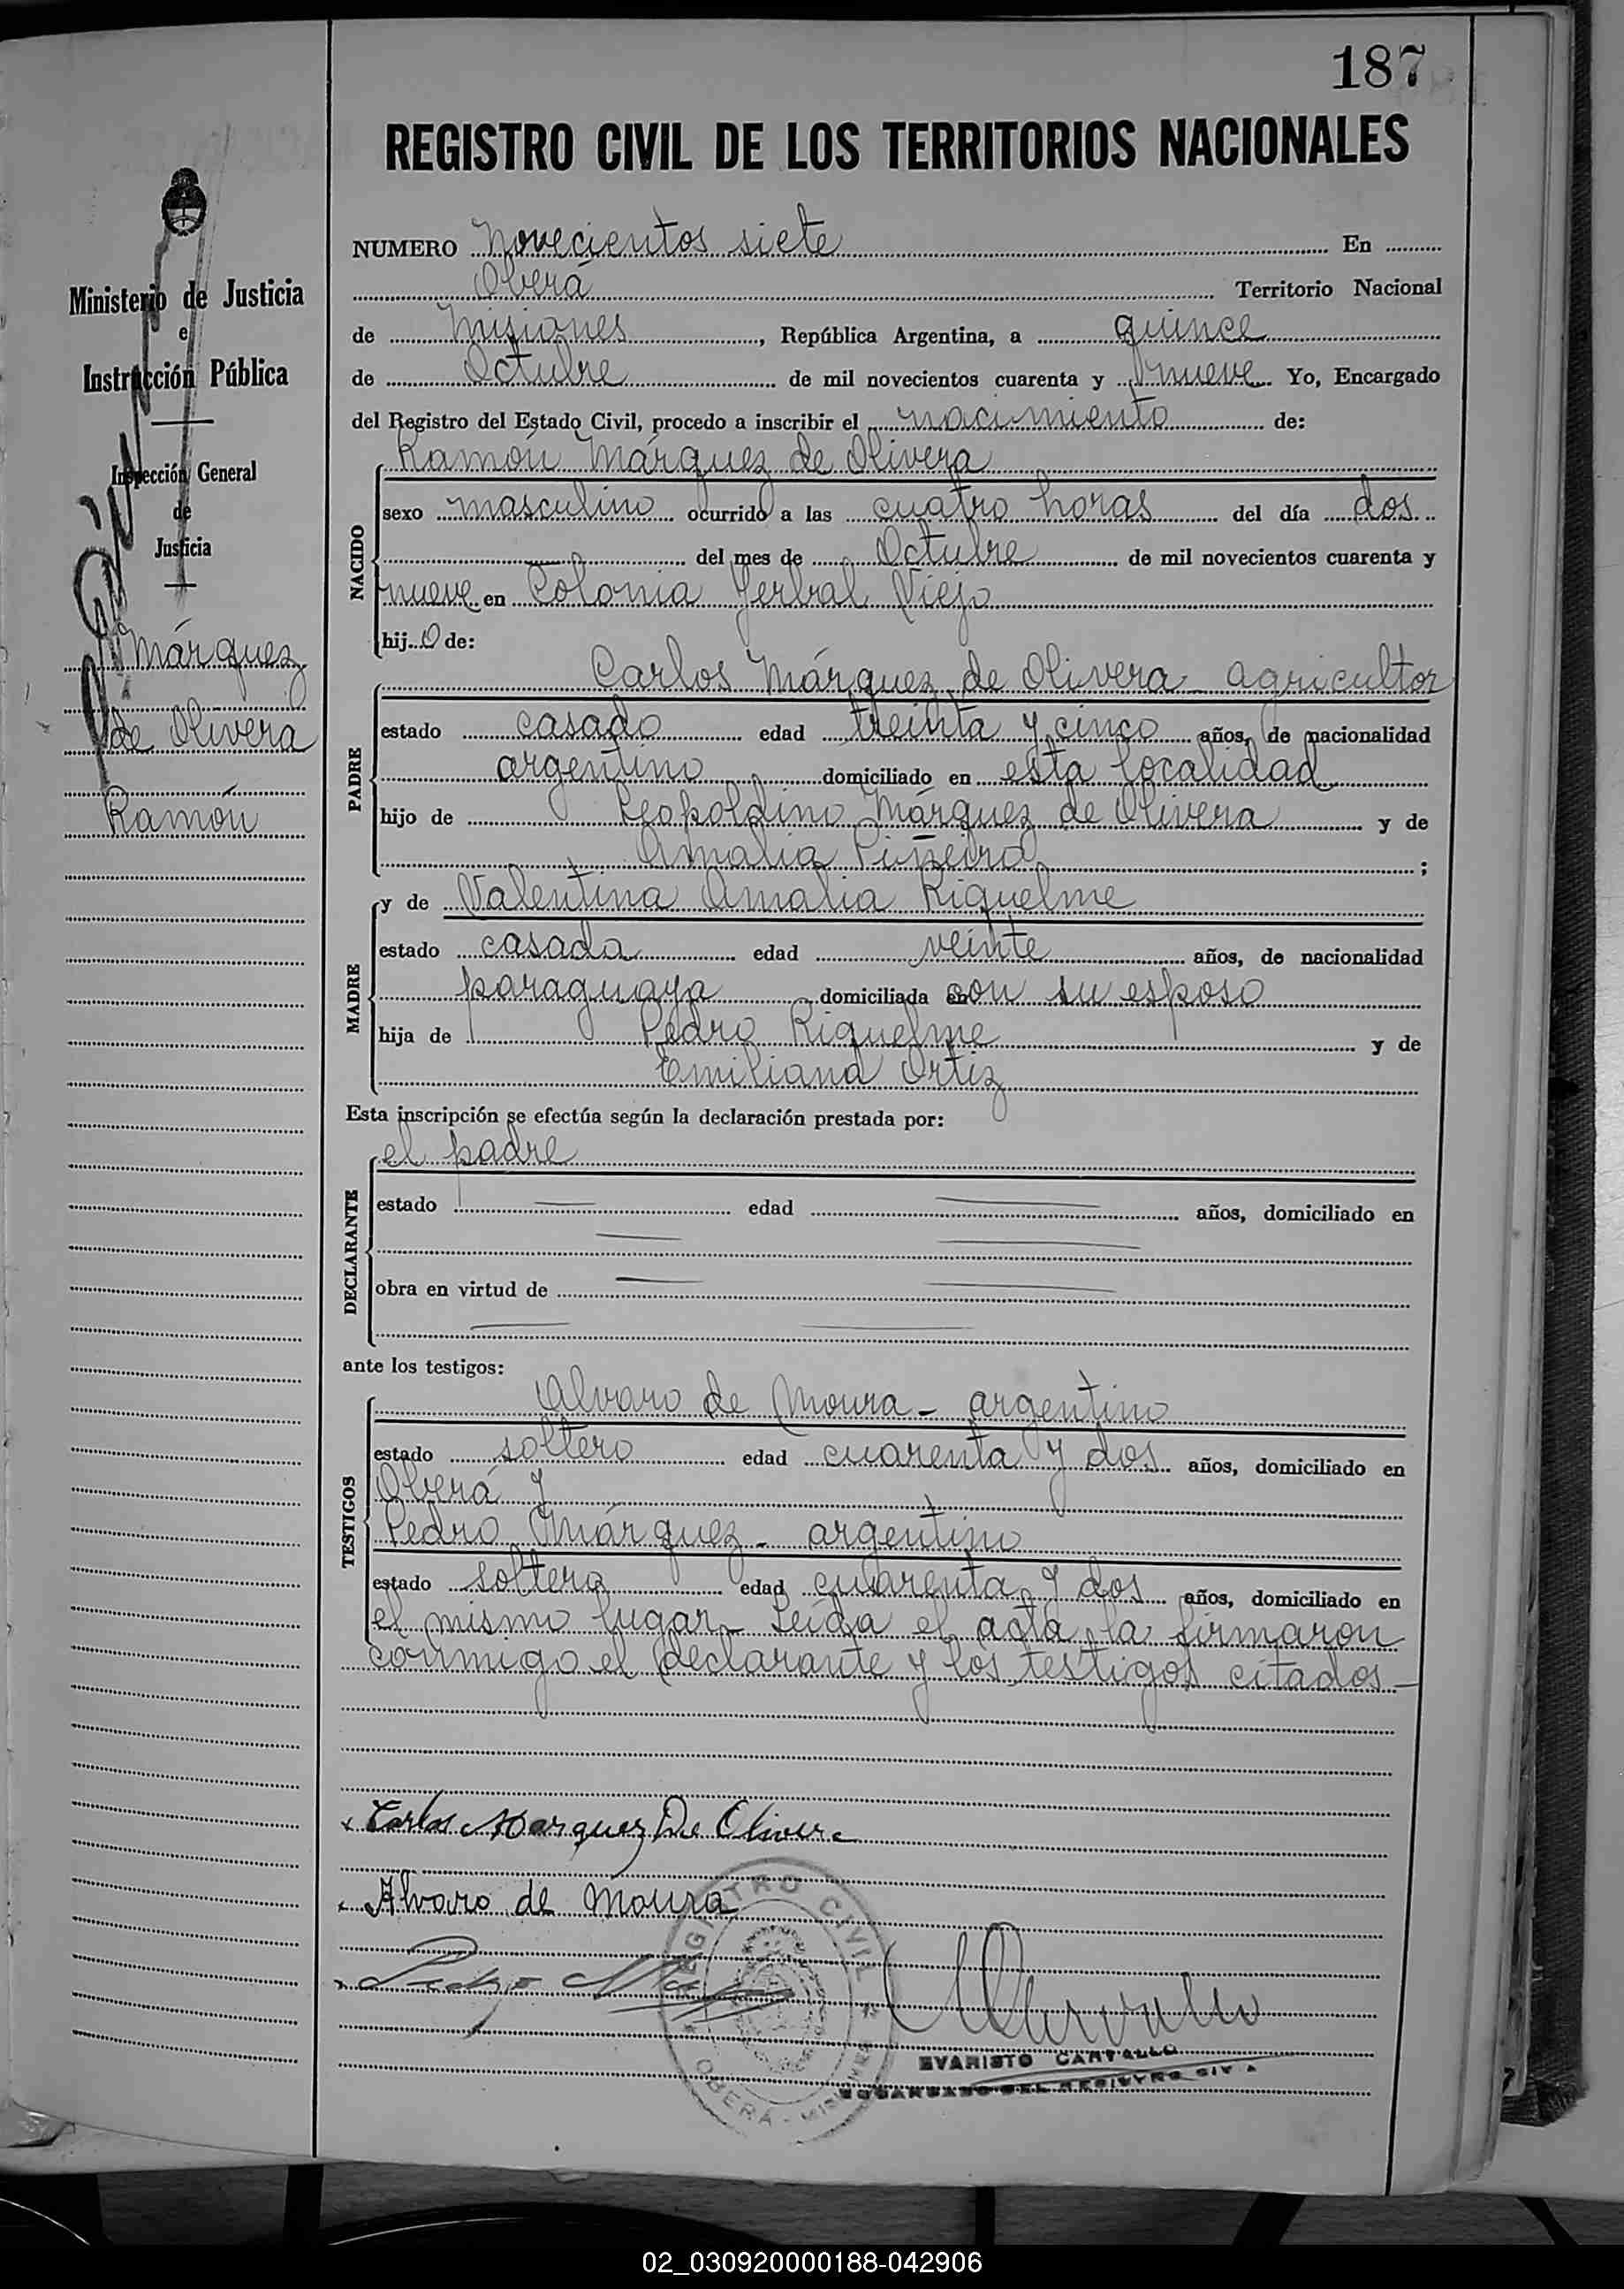 187
REGISTRO CIVIL DE LOS TERRITORIOS NACIONALES
Ministerio de Justicia
e
Instrucción Pública
Inspección General
de
Justicia
Márquez
de Olivera
Ramón
NUMERO Novecientos siete En
Oberá Territorio Nacional
de Misiones, República Argentina, a quince
de Octubre de mil novecientos cuarenta y nueve Yo, Encargado
del Registro del Estado Civil, procedo a inscribir el nacimiento de:
Ramón Márquez de Olivera
NACIDO
sexo masculino ocurrido a las cuatro horas del día dos
del mes de Octubre de mil novecientos cuarenta y
nueve en Colonia Yerbal Viejo
hijo de:
Carlos Márquez de Olivera - agricultor
PADRE
estado casado edad treinta y cinco años, de nacionalidad
argentino domiciliado en esta localidad
hijo de Leopoldino Márquez de Olivera y de
Amalia Piñeiro;
y de Valentina Amalia Riquelme
MADRE
estado casada edad veinte años, de nacionalidad
paraguaya domiciliada con su esposo
hija de Pedro Riquelme y de
Emiliana Ortiz
Esta inscripción se efectúa según la declaración prestada por:
el padre
DECLARANTE
estado edad años, domiciliado en
obra en virtud de
ante los testigos:
Alvaro de Moura - argentino
TESTIGOS
estado soltero edad cuarenta y dos años, domiciliado en
Oberá y
Pedro Márquez - argentino
estado soltero edad cuarenta y dos años, domiciliado en
el mismo lugar - Leída el acta, la firmaron
conmigo el declarante y los testigos citados -
x Carlos Marquez De Olivera
x Alvaro de Moura
x Pedro
REGISTRO CIVIL
OBERÁ - MISIONES
EVARISTO CARVALLO
ENCARGADO DEL REGISTRO CIVIL
02_030920000188-042906